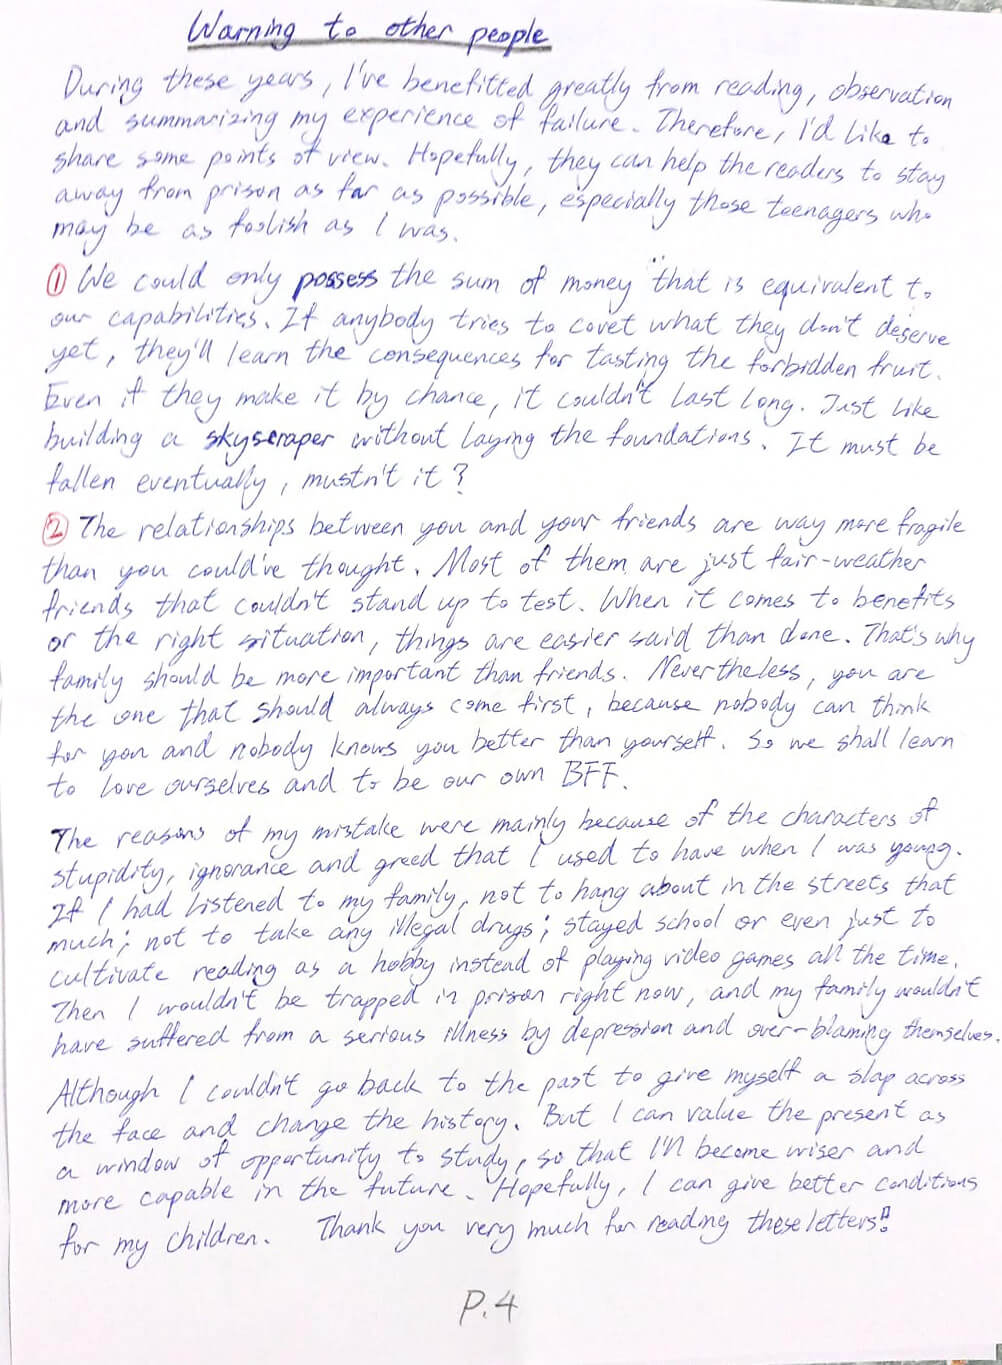 Warning to other people
During these years, I've benefitted greatly from reading, observation
and summarizing my experience of failure. Therefore, I'd like to
share some points of view. Hopefully, they can help the readers to stay
away from prison as far as possible, especially those teenagers who
may be as foolish as I was.
① We could only possess the sum of money that is equivalent to
our capabilities. If anybody tries to covet what they don't deserve
yet, they'll learn the consequences for tasting the forbidden fruit.
Even if they make it by chance, it couldn't last long. Just like
building a skyscraper without laying the foundations. It must be
fallen eventually, mustn't it?
② The relationships between you and your friends are way more fragile
than you could've thought. Most of them are just fair-weather
friends that couldn't stand up to test. When it comes to benefits
or the right situation, things are easier said than done. That's why
family should be more important than friends. Nevertheless, you are
the one that should always come first, because nobody can think
for you and nobody knows you better than yourself. So we shall learn
to love ourselves and to be our own BFF.
The reasons of my mistake were mainly because of the characters of
stupidity, ignorance and greed that I used to have when I was young.
If I had listened to my family, not to hang about in the streets that
much; not to take any illegal drugs; stayed school or even just to
cultivate reading as a hobby instead of playing video games all the time.
Then I wouldn't be trapped in prison right now, and my family wouldn't
have suffered from a serious illness by depression and over-blaming themselves.
Although I couldn't go back to the past to give myself a slap across
the face and change the history. But I can value the present as
a window of opportunity to study, so that I'll become wiser and
more capable in the future. Hopefully, I can give better conditions
for my children. Thank you very much for reading these letters!!
P.4